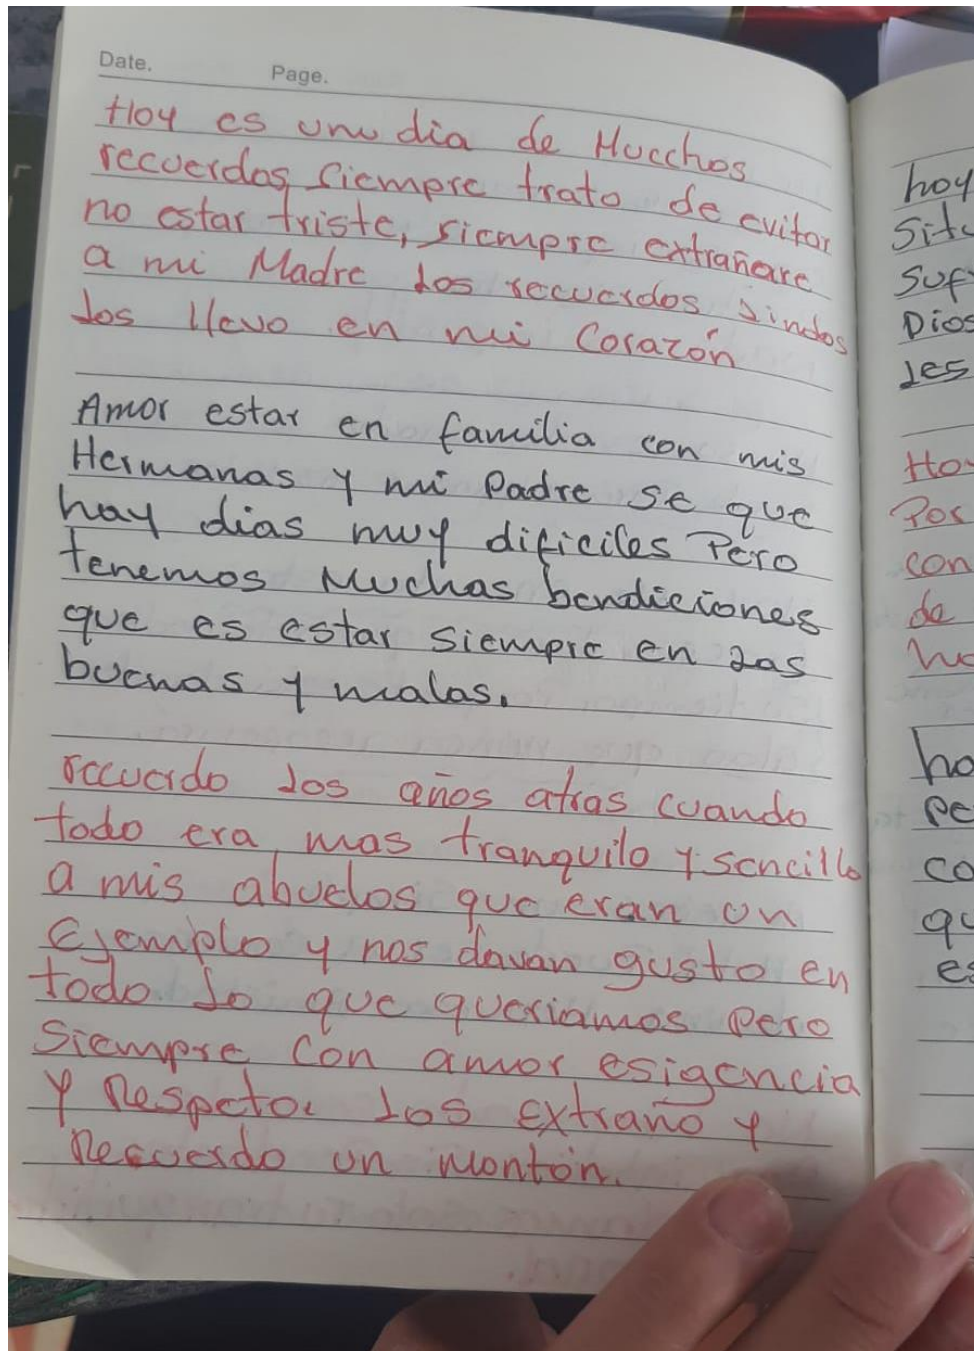 Date. Page.
Hoy es un dia de Mucchos
recuerdos, siempre trato de evitar
no estar triste, siempre extrañare
a mi Madre los recuerdos lindos
los llevo en mi Corazón
Amor estar en familia con mis
Hermanas y mi Padre se que
hay dias muy dificiles Pero
tenemos Muchas bendiciones
que es estar siempre en las
buenas y malas.
recuerdo los años atras cuando
todo era mas tranquilo y sencillo
a mis abuelos que eran un
Ejemplo y nos davan gusto en
todo lo que queriamos pero
Siempre con amor esigencia
y Respeto. los extraño y
Recuerdo un montón.
hoy
Dios
les
con
de